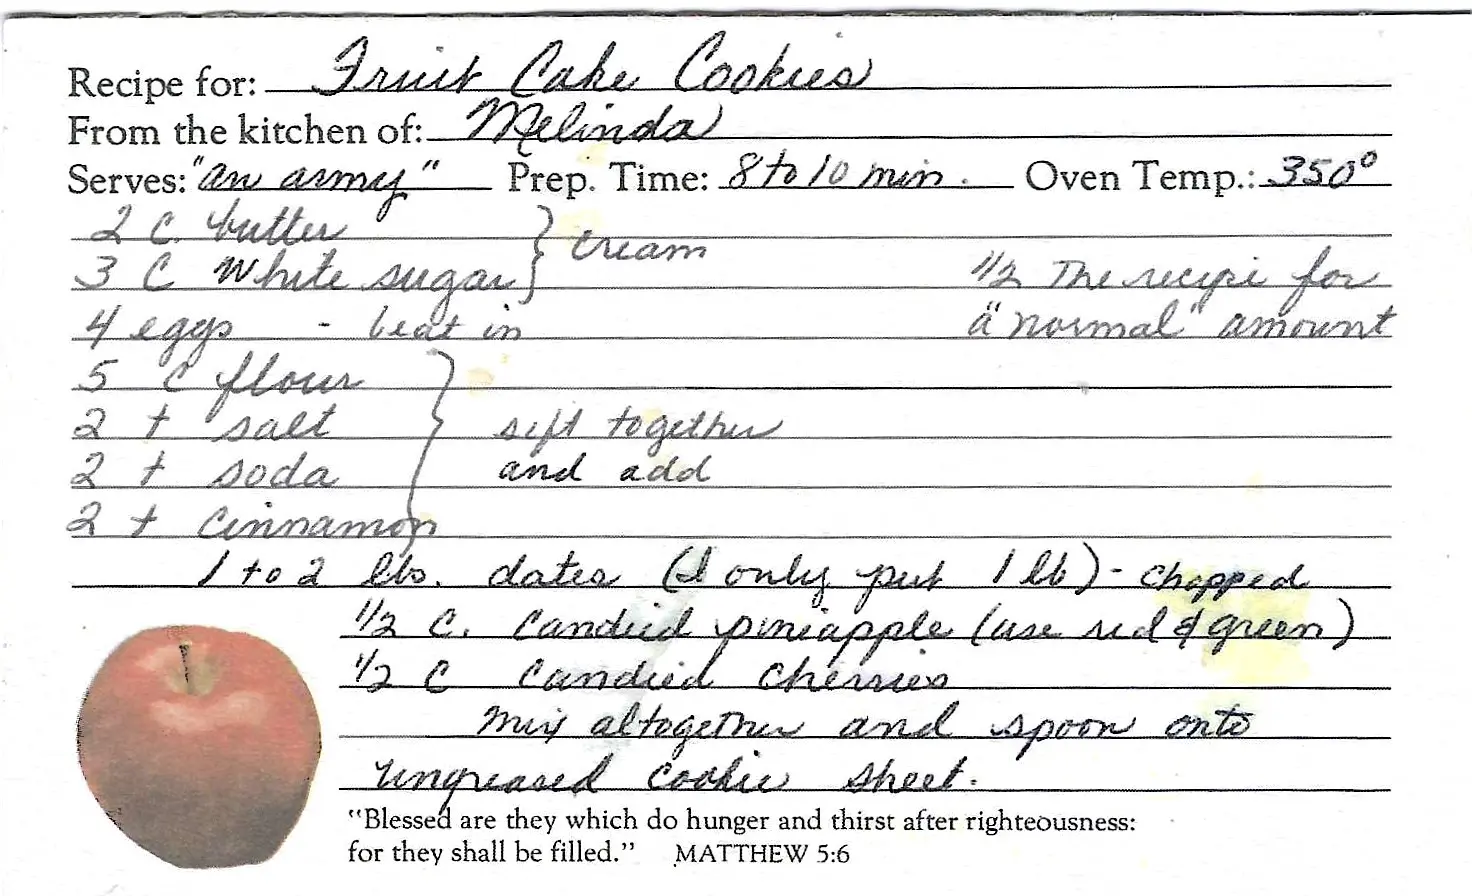 Recipe for: Fruit Cake Cookies
From the kitchen of: Melinda
Serves: "an army" Prep. Time: 8 to 10 min. Oven Temp.: 350°
2 C. butter } cream
3 C White sugar 1/2 The recipe for
4 eggs - beat in a "normal" amount
5 C flour
2 t salt sift together
2 t soda and add
2 t Cinnamon
1 to 2 lbs. dates (I only put 1 lb) - chopped
1/2 C. Candied pineapple (use red & green)
1/2 C Candied Cherries
Mix altogether and spoon onto
ungreased cookie sheet.
"Blessed are they which do hunger and thirst after righteousness:
for they shall be filled." MATTHEW 5:6